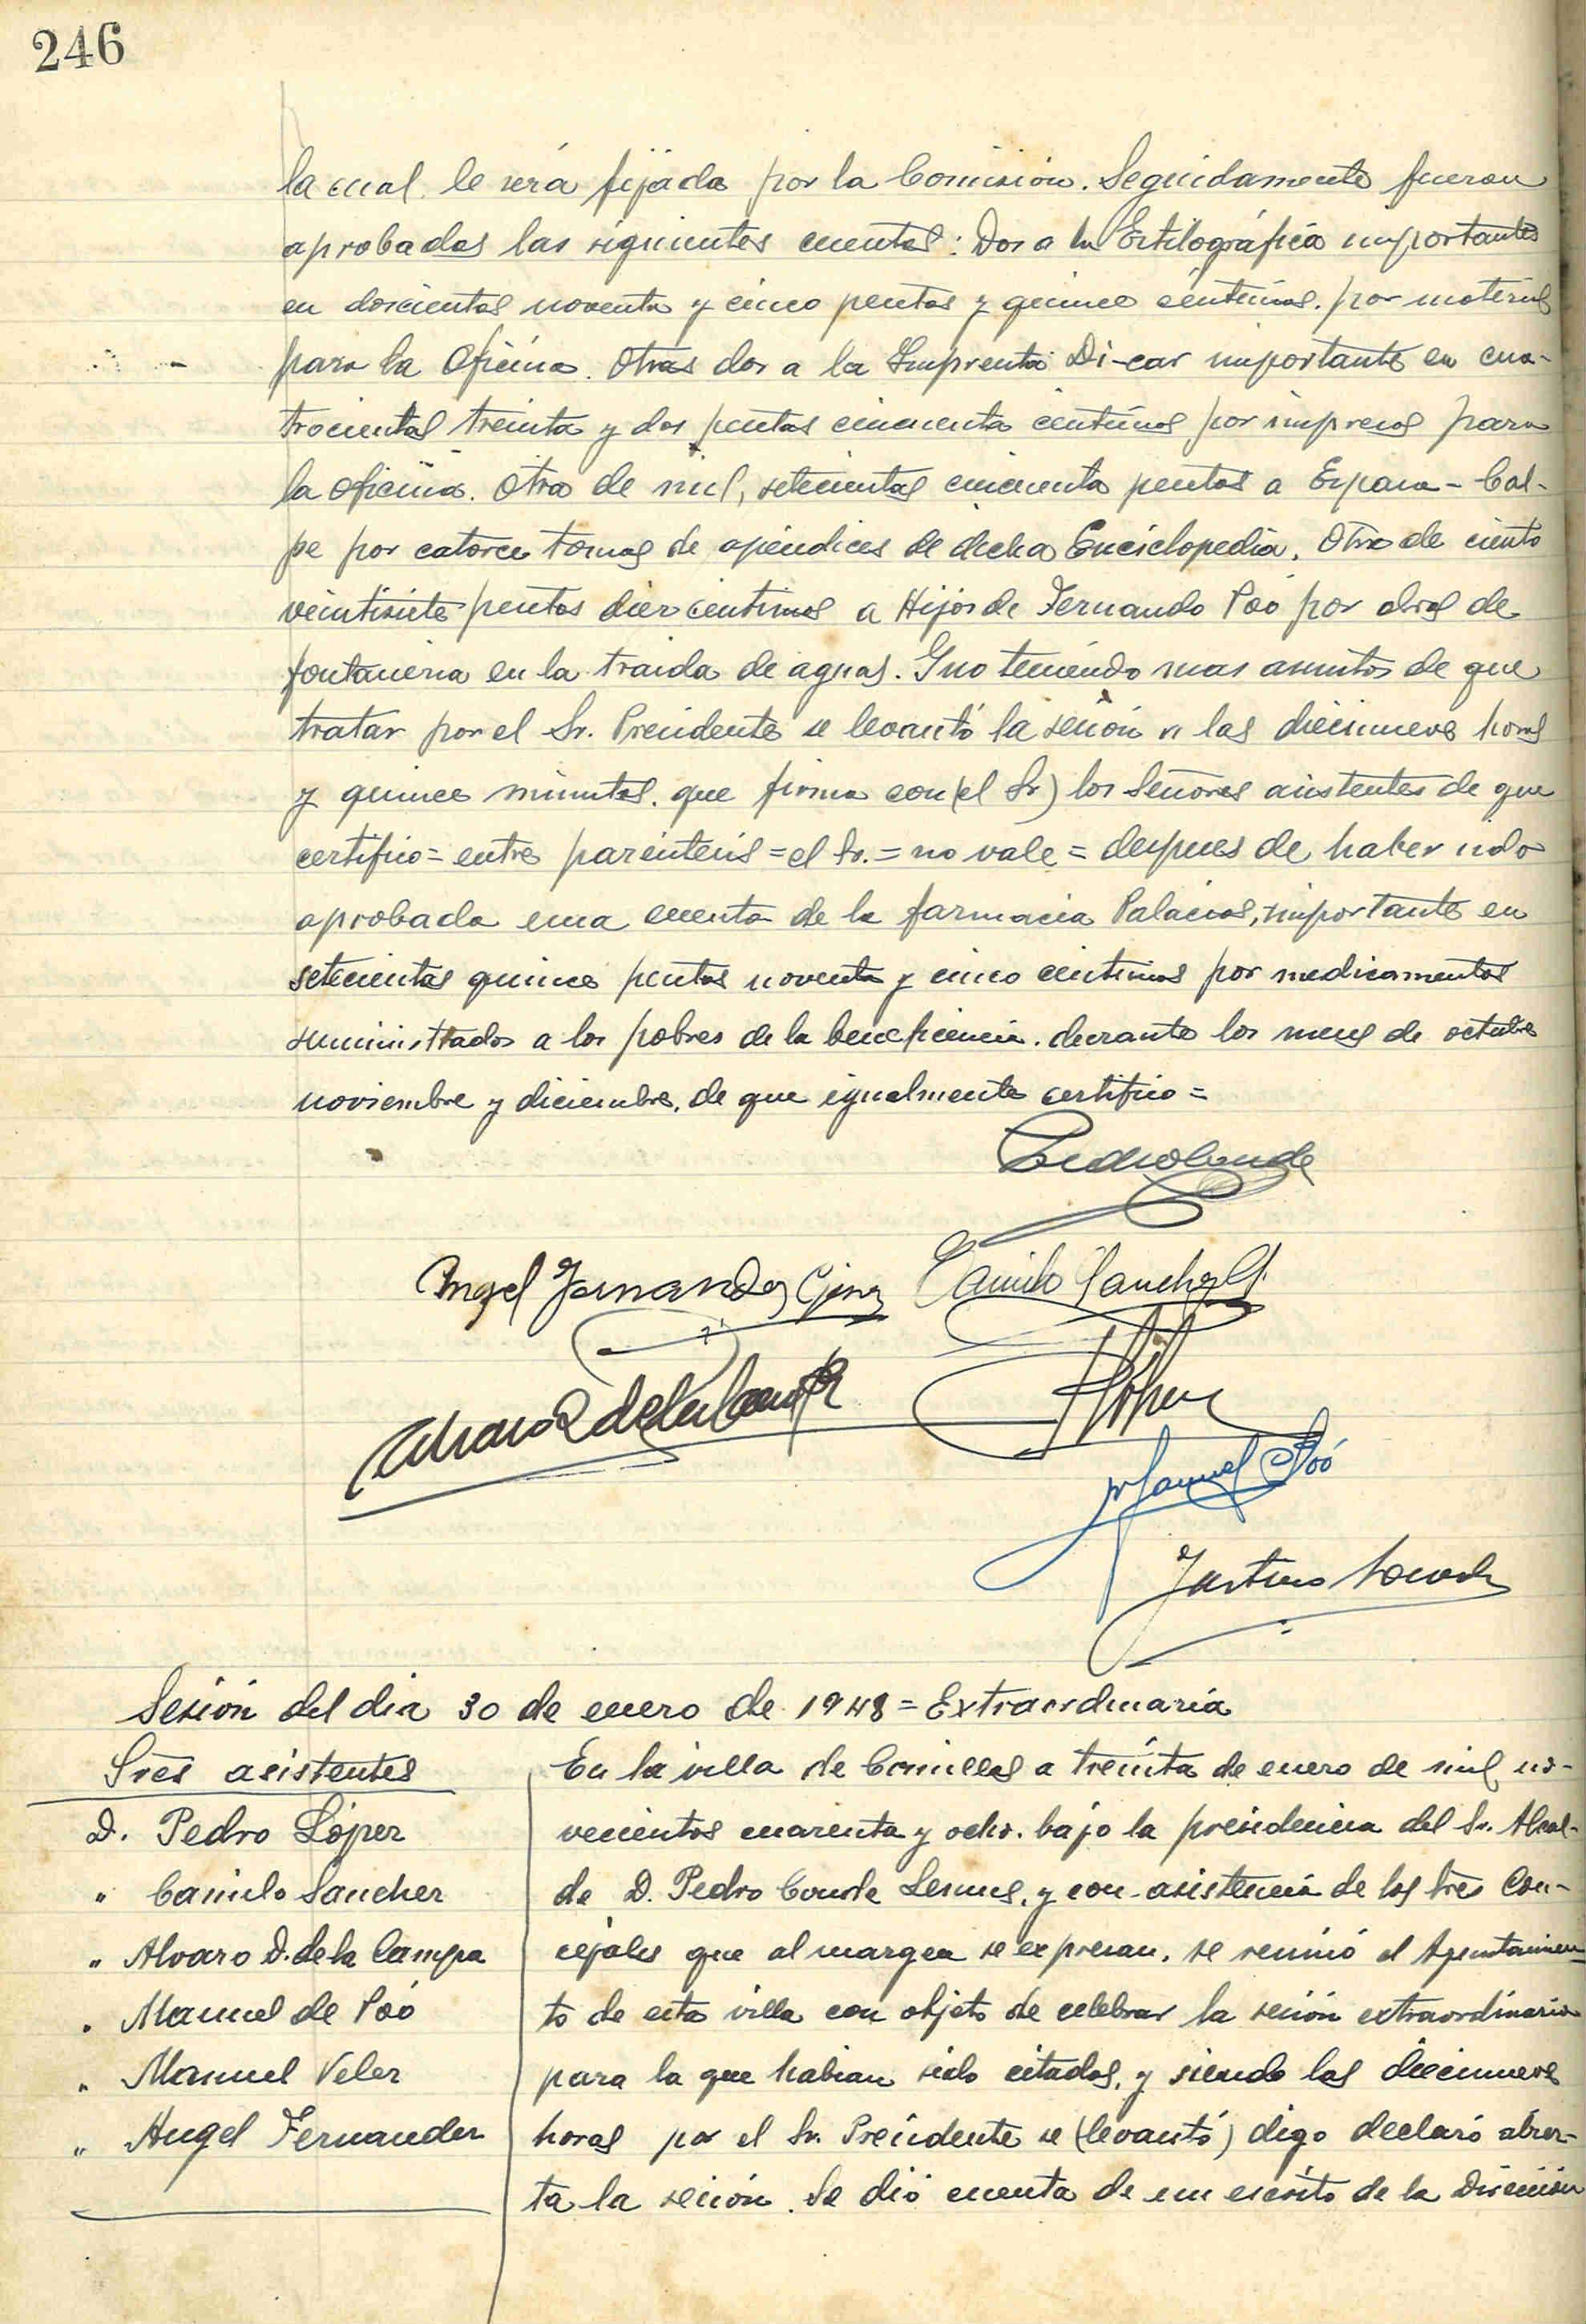 246
la cual le será fijada por la Comisión. Seguidamente fueron
aprobadas las siguientes cuentas: Dos a la Estilográfica importantes
en doscientas noventa y cinco pesetas y quince céntimos, por material
para la Oficina. Otras dos a la Imprenta Di-car importante en cua-
trocientas treinta y dos pesetas cincuenta centimos por impresos para
la oficina. Otra de mil, setecientas cincuenta pesetas a Espasa-Cal-
pe por catorce tomos de apéndices de dicha Enciclopedia. Otra de ciento
veintisiete pesetas diez centimos a Hijos de Fernando Poó por obras de
fontaneria en la traida de aguas. Y no teniendo mas asuntos de que
tratar por el Sr. Presidente se levantó la sesión a las diecinueve horas
y quince minutos. que firma con (el Sr) los Señores asistentes de que
certifico = entre paréntesis = el Sr. = no vale = despues de haber sido
aprobada una cuenta de la farmacia Palacios, importante en
setecientas quince pesetas noventa y cinco centimos por medicamentos
suministrados a los pobres de la beneficencia. durante los meses de octubre
noviembre y diciembre, de que igualmente certifico =
Pedro Conde
Angel Fernandez Camilo Sanchez
Alvaro D de la Campa
Manuel Poó
Sesión del dia 30 de enero de 1948 = Extraordinaria
Sres asistentes
D. Pedro López
" Camilo Sanchez
" Alvaro D. de la Campa
" Manuel de Poó
" Manuel Velez
" Angel Fernandez
En la villa de Comillas a treinta de enero de mil no-
vecientos cuarenta y ocho. bajo la presidencia del Sr. Alcal-
de D. Pedro Conde Lemus, y con asistencia de los Sres Con-
cejales que al margen se expresan. se reunió el Ayuntamien-
to de esta villa con objeto de celebrar la sesión extraordinaria
para la que habian sido citados, y siendo las diecinueve
horas por el Sr. Presidente se (levantó) digo declaró abier-
ta la sesión. Se dió cuenta de un escrito de la Dirección